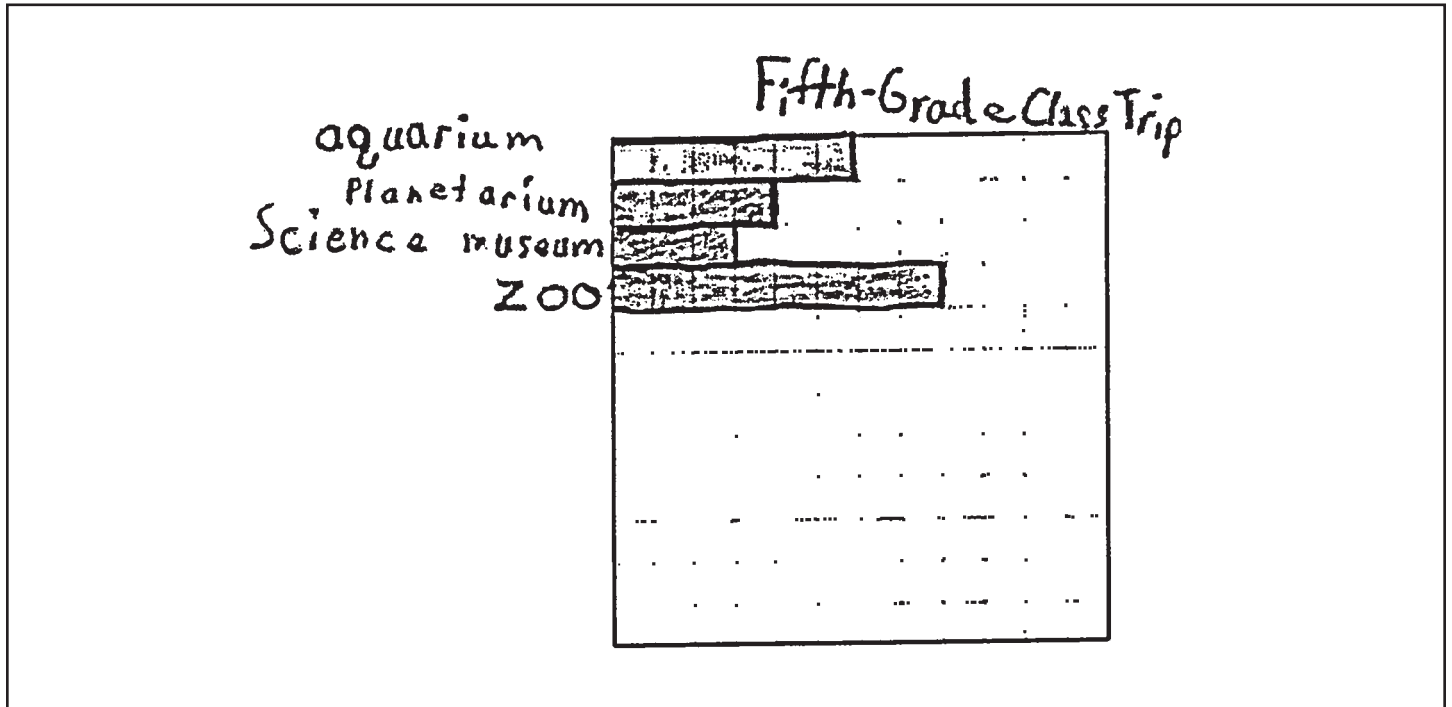 Fifth-Grade Class Trip
aquarium
Planetarium
Science museum
ZOO